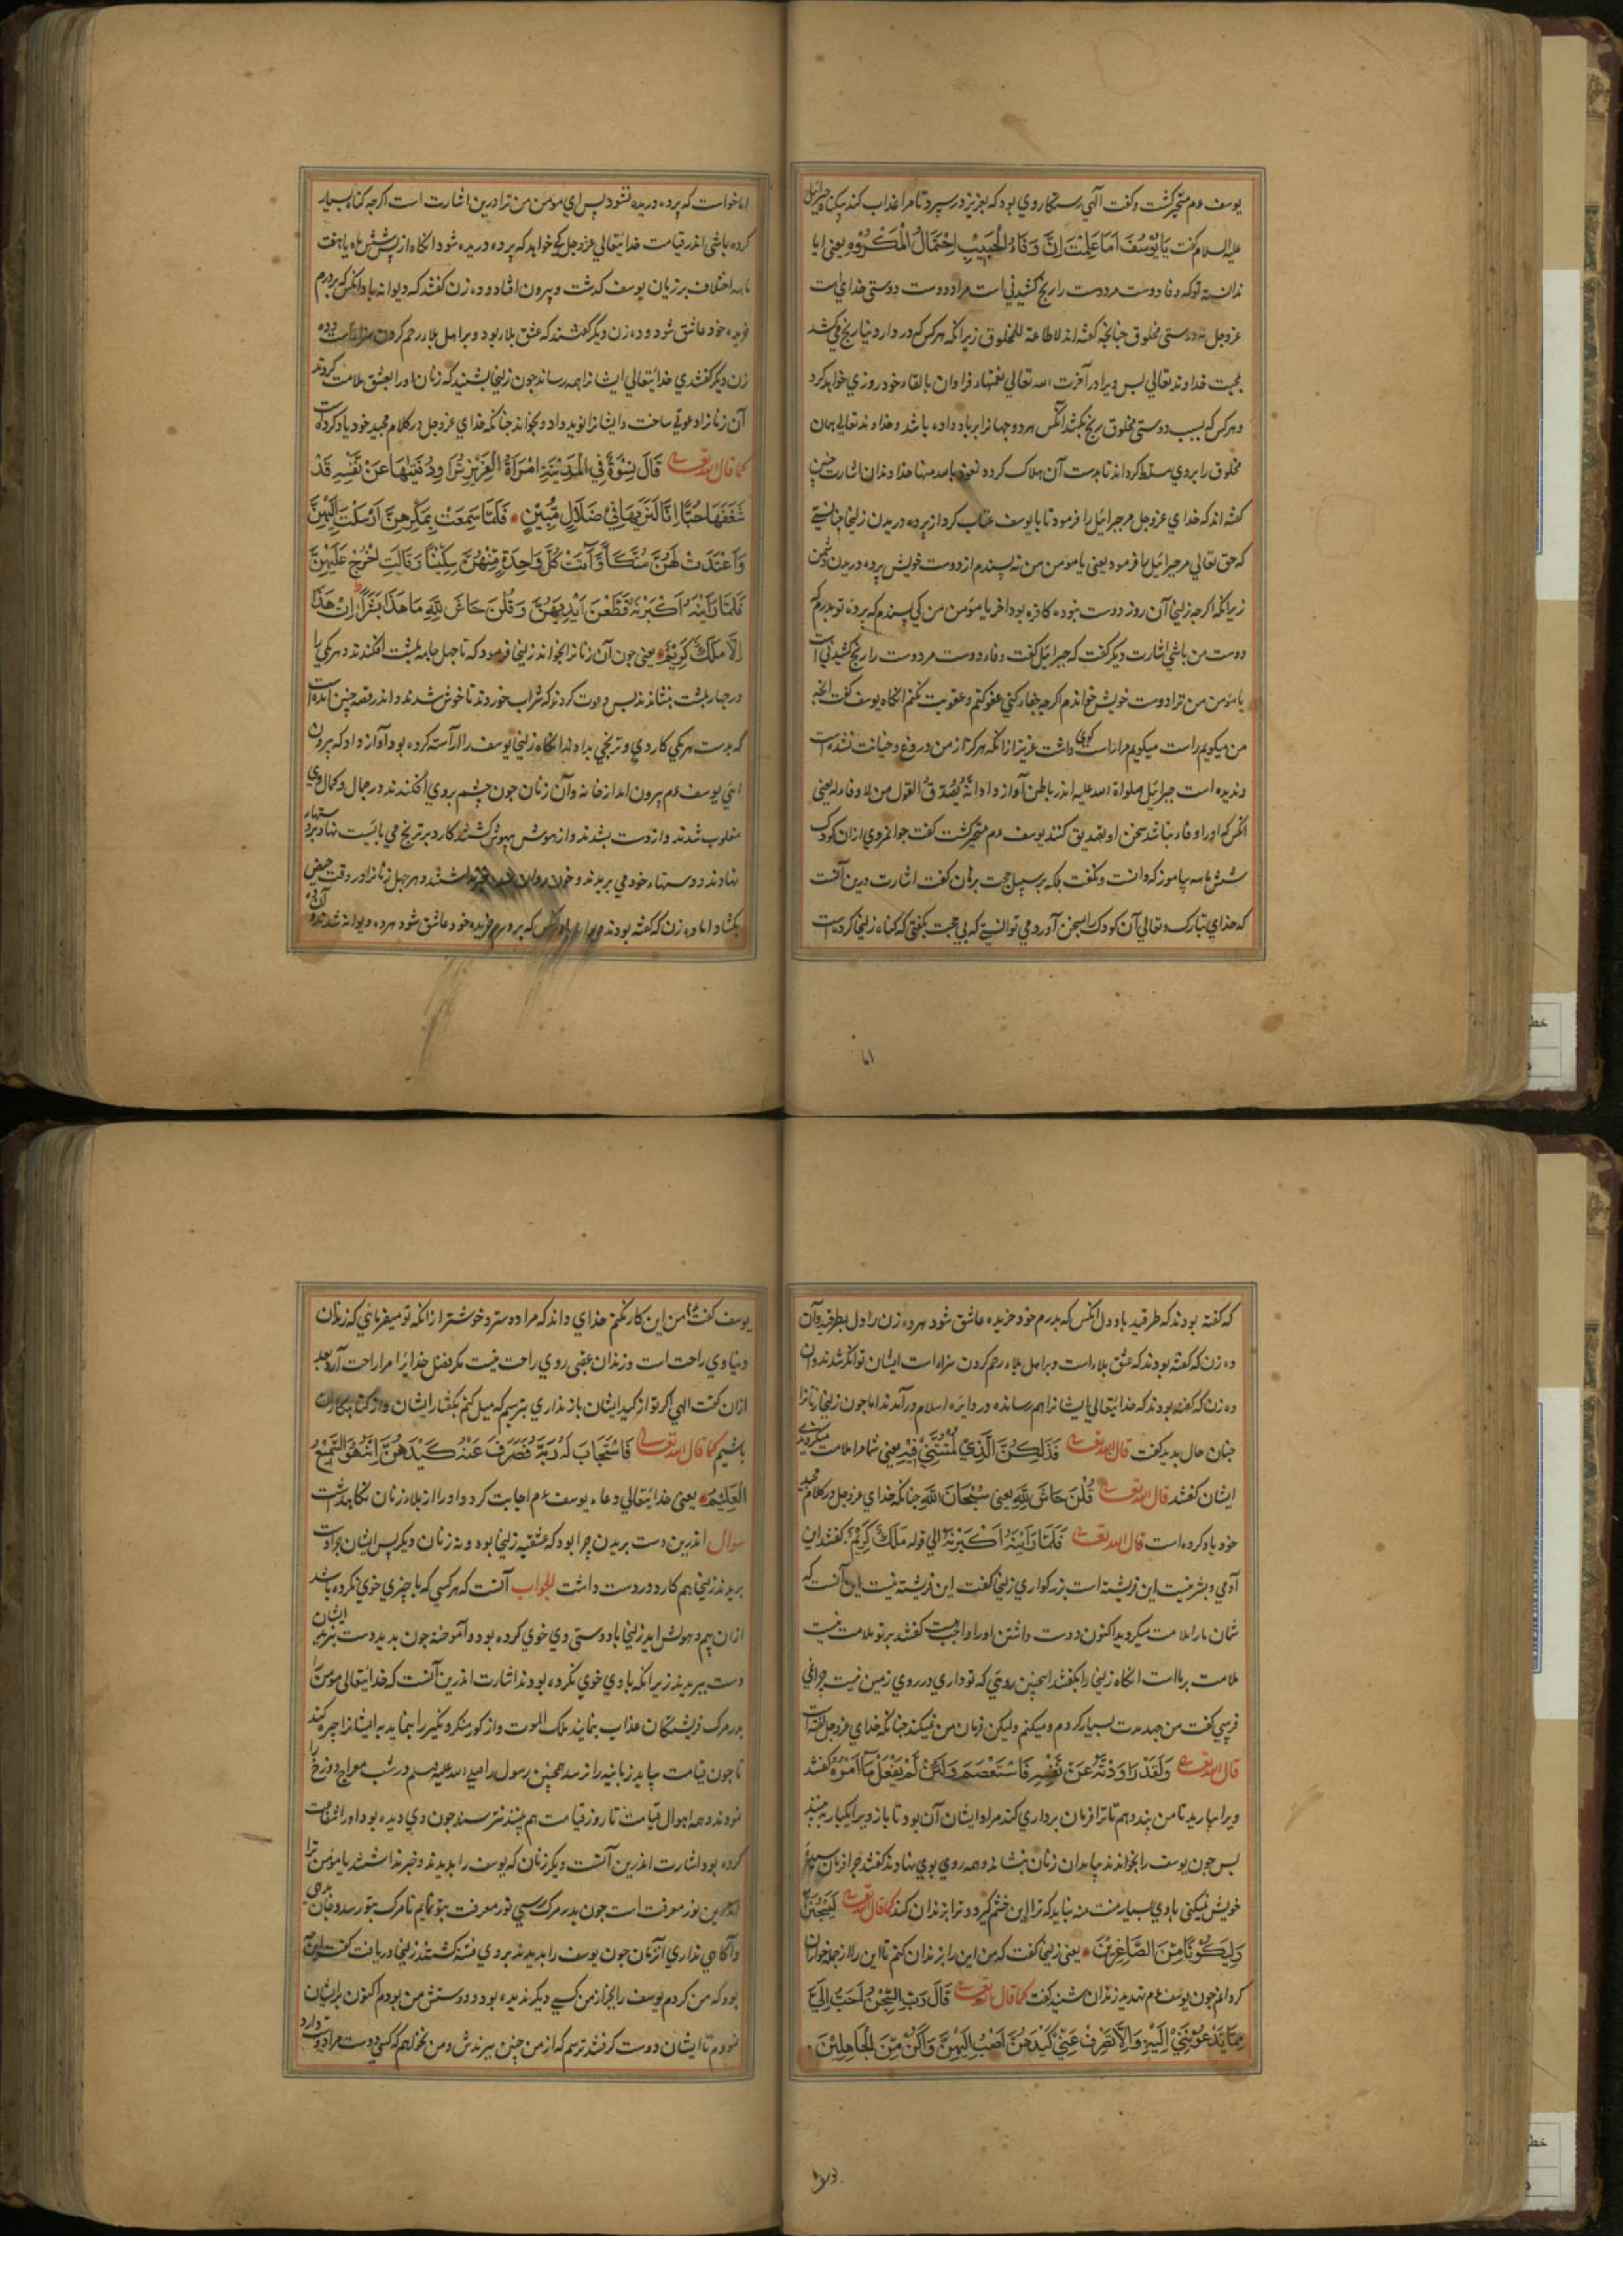 یوسف ءم متحیر کشت و کفت آلهی رستکاروی بود که بعزیزم سپرد تا مرا عذاب کند بیکناه جبرائیل
علیه السلام کفت یَا یُوْسُفَ اَمَا عَلِمْتَ اِنَّ وَفَاءُ الْحَبِیْبِ اِحْتِمَالُ الْمَکْرُوْهِ یعنی ایا
ندانسته توکه وفا دوست مردوست را رنج کشیدنی است مراد دوست دوستی خدای است
عزوجل نه دوستی مخلوق جنانجه کفته اند لاطاعة للمخلوق زیرانکه هرکس که در دار دنیا رنج می کشد
بمحبت خداوند تعالی بس ویرا در آخرت الله تعالی نعمتهاء فراوان بالقاء خود روزی خواهد کرد
و هرکس که بسبب دوستی مخلوق رنج بکشد آنکس هر دو جهانرا برباد داده باشد و خداوند تعالی همان
مخلوق را بروی مسلط کرداند تا بدست آن هلاک کردد نعوذ بالله منها خداوندان اشارت چنین
کفته اند که خدای عزوجل مر جبرائیل را فرمود تا با یوسف عتاب کرد از برده دریدن زلیخا
که حق تعالی مر جبرائیل را فرمود یعنی یا مومن من نه پسندم از دوست خویش پرده دریدن دشمن
زیرانکه اکرجه زلیخا آن روز دوست نبوده کافره بود اخر یا مؤمن من کی پسندم که پرده تو بدرم که
دوست من باشی اشارت دیکر کفت که جبرائیل کفت وفاء دوست مردوست را رنج کشیدنی است
یا مؤمن من ترا دوست خویش خواندم اکرجه جفا کنی عفو کنم و عقوبت نکنم انکاه یوسف کفت انجه
من میکویم راست میکویم مرا راست کوی داشت عزیز از انکه هرکز از من دروغ و خیانت نشنده است
و ندیده است جبرائیل صلواة الله علیه اندر باطن آواز داد انَّهُ یُصَدّقُ القول من لا وفاء له یعنی
انکس که اورا وفاء نباشد سخن او تصدیق کنند یوسف ءم متحیر کشت کفت جوانمردی ازان کودک
شش ماهه بیاموز که دانست و نکفت بلکه بر سبیل حجت برهان کفت اشارت درین آنست
که خدای تبارک و تعالی آن کودک را بسخن آورد می توانست که بی حجت بکفتی که کناه زلیخا کرده است
اما
اما خواست که پرده دریده نشود پس ای مؤمن من ترا درین اشارت است اکرجه کناه بسیار
کرده باشی اندر قیامت خدایتعالی عزوجل کی خواهد که پرده دریده شود انکاه از پس شش ماه یا هفت
ماهه اختلاف بر زبان یوسف کذشت و بیرون افتاد و ده زن کفتند که دیوانه باد انکس که بر درم
خریده خود عاشق شود و ده زن دیکر کفتند که عشق بلا بود و بر اهل بلا رحم کردن سزاوار است و ده
زن دیکر کفتندی خدایتعالی ایشانرا بهم رساند جون زلیخا بشنید که زنان اورا بعشق ملامت کردند
آن زنانرا دعوتی ساخت و ایشانرا نوید داد و بخواند جنانکه خدای عزوجل در کلام مجید خود یاد کرده است
کما قال الله تعالی قَالَ نِسْوَةٌ فِی الْمَدِیْنَةِ امْرَأَةُ الْعَزِیْزِ تُرَاوِدُ فَتٰیهَا عَنْ نَّفْسِهٖ قَدْ
شَغَفَهَا حُبًّا اِنَّا لَنَرٰیهَا فِیْ ضَلَالٍ مُّبِیْنٍ ۰ فَلَمَّا سَمِعَتْ بِمَکْرِهِنَّ اَرْسَلَتْ اِلَیْهِنَّ
وَاَعْتَدَتْ لَهُنَّ مُتَّکَأً وَّآتَتْ کُلَّ وَاحِدَةٍ مِّنْهُنَّ سِکِّیْنًا وَّقَالَتِ اخْرُجْ عَلَیْهِنَّ
فَلَمَّا رَاَیْنَهٗ اَکْبَرْنَهٗ وَقَطَّعْنَ اَیْدِیَهُنَّ وَقُلْنَ حَاشَ لِلّٰهِ مَا هٰذَا بَشَرًا اِنْ هٰذَا
اِلَّا مَلَکٌ کَرِیْمٌ ۰ یعنی جون آن زنانرا بخواند زلیخا فرمود که تا جهل جامه بشت افکندند و هر یکی را
در جهار بلشت بنشاندند پس دعوت کردند که شراب خوردند تا خوش شدند و اندر قصه چنین آمده است
که بدست هر یکی کاردی و ترنجی بداد انکاه زلیخا یوسف را آراسته کرده بود آواز داد که بیرون
ائی یوسف ءم بیرون آمد از خانه و آن زنان جون چشم بروی افکندند در جمال و کمال وی
مغلوب شدند و از دست بشدند و از هوش بیهوش کشتند کارد بر ترنج می بایست نهاد بر دستهاء
نهادند و دستهاء خود می بریدند و خون روان شد خبر نداشتند و هر جهل زنانرا در وقت حیض
بکشاد اما ده زن که کفته بودند دیوانه باد انکس که بر درم خریده خود عاشق شود هر ده دیوانه شدند و آن ده
که کفته بودند که طرقید باد دل انکس که بدرم خود خریده عاشق شود هر ده زن را دل بطرقید و آن
ده زن که کفته بودند که عشق بلاء است و بر اهل بلاء رحم کردن سزاوار است ایشان توانکر شدند و آن
ده زن که کفته بودند که خدایتعالی ایشانرا بهم رسانده در دایره اسلام درآمدند اما جون زلیخا زنانرا
جنان حال بدید کفت قال الله تعالی فَذٰلِکُنَّ الَّذِیْ لُمْتُنَّنِیْ فِیْهِ یعنی شما مرا ملامت میکردید
ایشان کفتند قال الله تعالی قُلْنَ حَاشَ لِلّٰهِ یعنی سُبْحَانَ اللّٰهِ جنانکه خدای عزوجل در کلام مجید
خود یاد کرده است قال الله تعالی فَلَمَّا رَاَیْنَهٗ اَکْبَرْنَهٗ الی قوله مَلَکٌ کَرِیْمٌ کفتند این
آدمی و بشر نیست این فرشته است بزرکواری زلیخا کفت این فرشته نیست این آنست که
شمان مارا ملامت میکردید اکنون دوست داشتن اورا واجب هست کفتند بر تو ملامت نیست
ملامت بر ما است انکاه زلیخا را بکفتند اینچنین روئی که تو داری در روی زمین نیست چرا نمی
فریبی کفت من جهد مدت بسیار کردم و میکنم ولیکن فرمان من نمیکند جنانکه خدای عزوجل کفته است
قال الله تعالی وَلَقَدْ رَاوَدْتُّهٗ عَنْ نَّفْسِهٖ فَاسْتَعْصَمَ وَلَئِنْ لَّمْ یَفْعَلْ مَا اٰمُرُهٗ کفتند
ویرا بیارید تا من پند دهم تا ترا فرمان برداری کند مراد ایشان آن بود تا باز ویرا یکبار به بینند
بس جون یوسف را بخواندند بیامد بدان زنان بنشاندند و همه روی بوی نهادند کفتند جرا فرمان سیده
خویش نمیکنی با وی بسیار منت منه نباید که ترا این خشم کیرد و ترا بزندان کند کما قال الله تعالی لَیُسْجَنَنَّ
وَلِیَکُوْنًا مِّنَ الصَّاغِرِیْنَ ۰ یعنی زلیخا کفت که من این را بزندان کنم تا این را از جمله خواران
کردانم جون یوسف ءم تهدید زندان شنید کفت کما قال الله تعالی قَالَ رَبِّ السِّجْنُ اَحَبُّ اِلَیَّ
مِمَّا یَدْعُوْنَنِیْ اِلَیْهِ وَاِلَّا تَصْرِفْ عَنِّیْ کَیْدَهُنَّ اَصْبُ اِلَیْهِنَّ وَاَکُنْ مِّنَ الْجَاهِلِیْنَ ۰
یوسف کفت ءم من این کار نکنم خدای داند که مرا دوستر و خوشتر از انکه تو میفرمائی که زندان
دنیاوی راحت است و زندان عقبی روی راحت نیست مکر فضل خدای مرا راحت آرد بعد
ازان کفت الهی اکر تو از کید ایشان باز نداری بترسم که میل کنم بکفتار ایشان و از کناهکاران
باشیم کما قال الله تعالی فَاسْتَجَابَ لَهٗ رَبُّهٗ فَصَرَفَ عَنْهُ کَیْدَهُنَّ اِنَّهٗ هُوَ السَّمِیْعُ
الْعَلِیْمُ ۰ یعنی خدایتعالی دعاء یوسف ءم اجابت کرد و اورا از بلاء زنان نکاهداشت
سوال اندرین دست بریدن چرا بود که عشقیه زلیخا بود و نه زنان دیکر پس ایشان چرا دست
بریدند زلیخا هم کارد در دست داشت الجواب آنست که هر کسی که با چیزی خوی نکرده باشد
ازان بیم و هولش اید زلیخا با دوستی وی خوی کرده بود و آموخته جون بدید دست نبرید ایشان
دست ببریدند زیرانکه با وی خوی نکرده بودند اشارت اندرین آنست که خدایتعالی مومن را
بدر مرک فرشتکان عذاب بنماید ملک الموت و از کور منکر و نکیر را بنماید به ایشانرا چیره کند
تا جون قیامت بیاید زبانیه را نترسد همچنین رسول را صلی الله علیه وسلم در شب معراج دوزخ را
نمودند و همه اهوال قیامت تا روز قیامت هم بینند نترسند جون وی دیده بود اورا شفاعت
کرده بود اشارت اندرین آنست دیکر زنان که یوسف را بدیدند و خبر نداشتند یا مؤمن ترا
این نور معرفت است جون بدر مرک رسی نور معرفت بتو نمایم تا مرک بتو رسد و جان بدهی
و آکاهی نداری آنزنان جون یوسف را بدیدند بروی فتنه کشتند زلیخا دریافت کفت این
بود که من کردم یوسف را بجز از من کسی دیکر ندیده بود و دوستش من بودم اکنون بر ایشان
نمودم تا ایشان دوست کرفتند ترسم که از من چنین ببرندش و من نخواهم که کسی دوست مرا دوست دارد